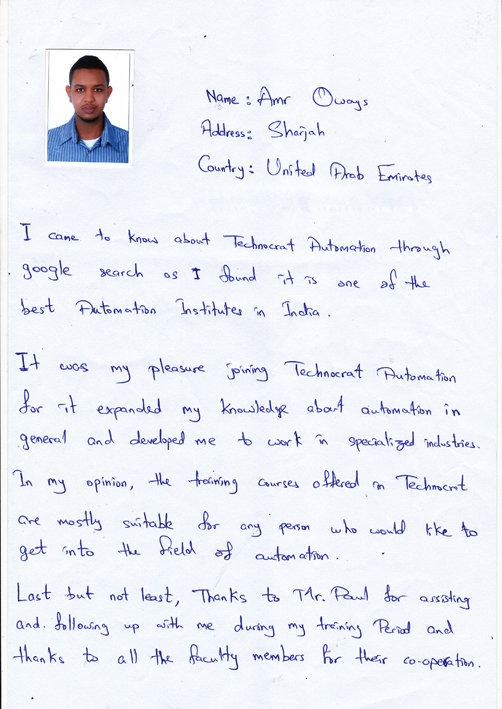 Name : Amr Oways
Address: Sharjah
Country : United Arab Emirates
I came to know about Technocrat Automation through
google search as I found it is one of the
best Automation Institutes in India.
It was my pleasure joining Technocrat Automation
for it expanded my knowledge about automation in
general and developed me to work in specialized industries.
In my opinion, the training courses offered in Technocrat
are mostly suitable for any person who would like to
get into the field of automation.
Last but not least, Thanks to Mr. Paul for assisting
and following up with me during my training Period and
thanks to all the faculty members for their co-operation.